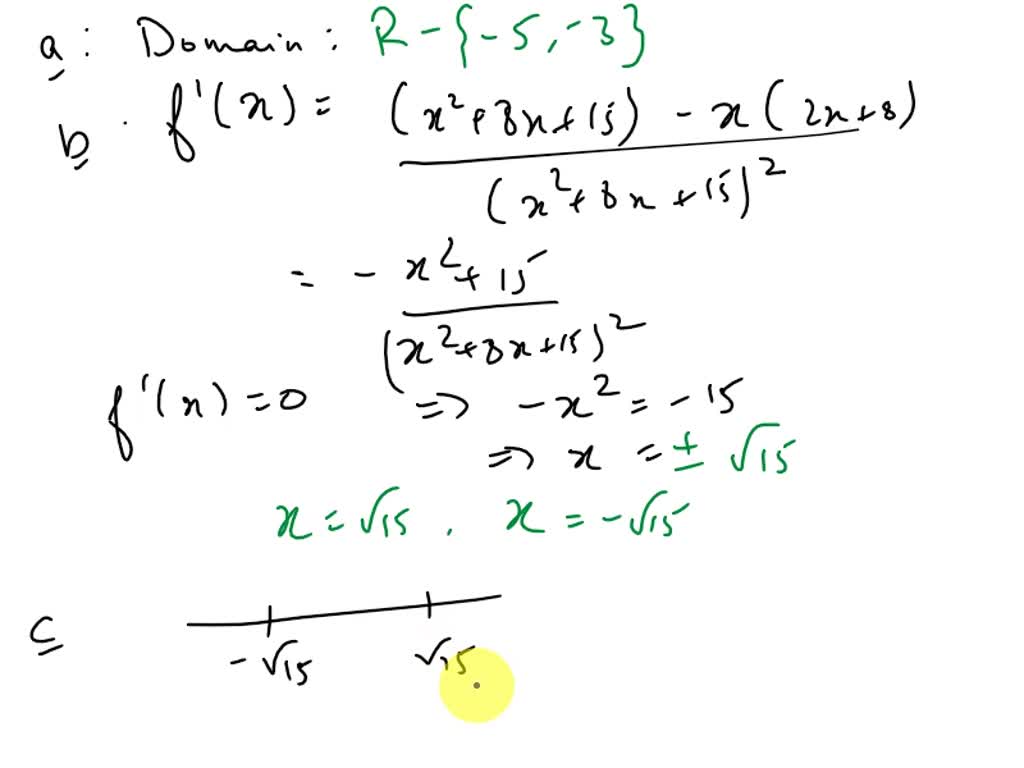 a : Domain : R - {-5, -3}
b . f'(x) = (x² + 8x + 15) - x (2x + 8) / (x² + 8x + 15)²
= - x² + 15 / (x² + 8x + 15)²
f'(x) = 0 ⇒ -x² = -15
⇒ x = ± √15
x = √15 , x = -√15
c
-√15 √15